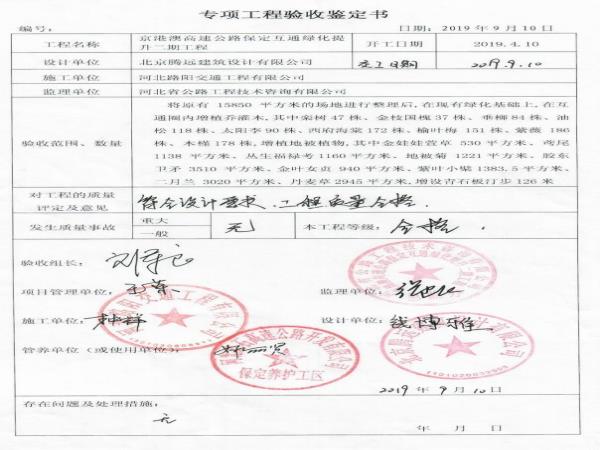 专项工程验收鉴定书
编号： 日期：2019年9月10日
工程名称 京港澳高速公路保定互通绿化提升二期工程 开工日期 2019.4.10
设计单位 北京腾远建筑设计有限公司 竣工日期 2019.9.10
施工单位 河北路阳交通工程有限公司
监理单位 河北省公路工程技术咨询有限公司
验收范围、数量
将原有 15850 平方米的场地进行整理后,在现有绿化基础上,在互
通圈内增植乔灌木,其中栾树 47 株、金枝国槐 37 株、垂柳 84 株、油
松 118 株、太阳李 90 株、西府海棠 172 株、榆叶梅 151 株、紫薇 186
株、木槿 178 株,增植地被植物,其中金娃娃萱草 530 平方米、鸢尾
1138 平方米、丛生福禄考 1160 平方米、地被菊 1221 平方米、胶东
卫矛 3510 平方米、金叶女贞 940 平方米、紫叶小檗 1383.5 平方米、
二月兰 3020 平方米、丹麦草 2945 平方米,增设青石板汀步 126 米
对工程的质量评定及意见 符合设计要求、工程质量合格.
发生质量事故 重大 一般 无 本工程等级： 合格.
验收组长：
项目管理单位： 监理单位：
施工单位： 设计单位：
管养单位（或使用单位）：
保定养护工区
2019 年 9 月 10 日
存在问题及处理措施：
无
年 月 日